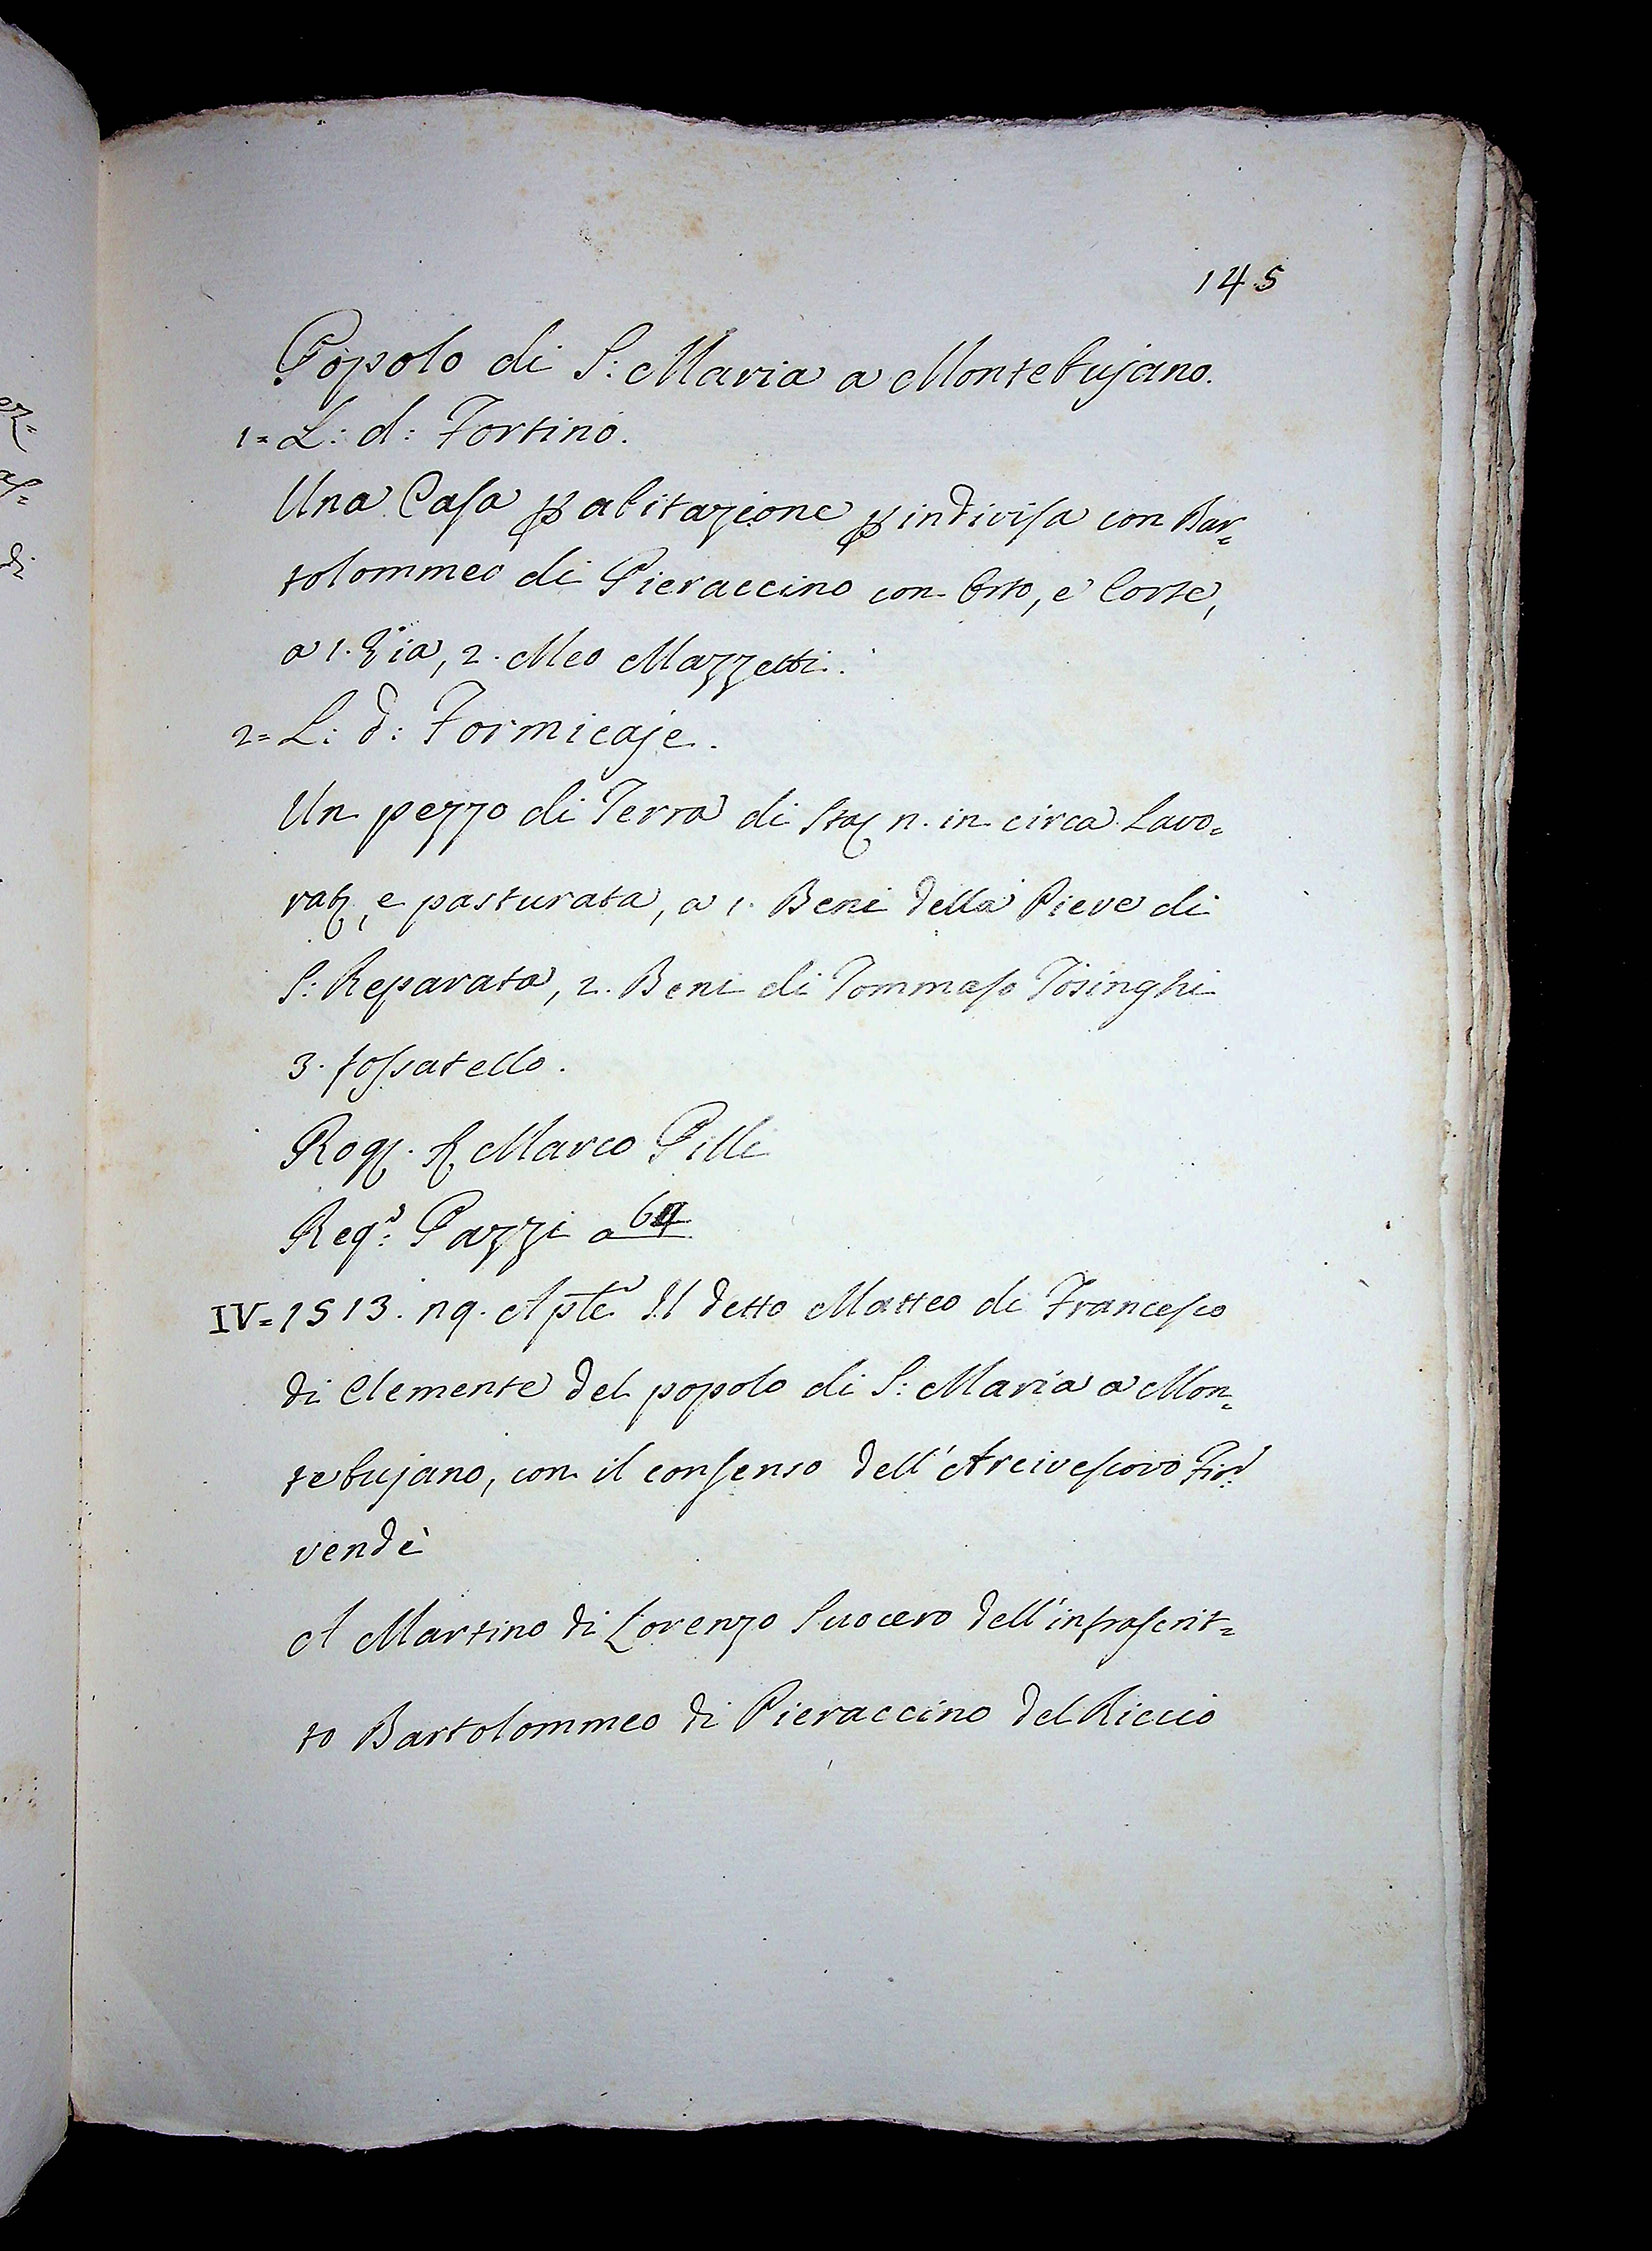 145
Popolo di S: Maria a Montebujano.
1= L: d: Fortino.
Una Casa p abitazione p indivisa con Bar=
tolommeo di Pieraccino con Orto, e Corte,
a 1. Via, 2. Meo Mazzetti.
2= L: d: Formicaje.
Un pezzo di Terra di Sta n. in circa Lavo=
rat, e pasturata, a 1. Beni della Pieve di
S: Reparata, 2. Beni di Tommaso Tosinghi
3. fossatello.
Rog. S Marco Pilli
Reg: Pazzi a
IV= 1513. nq. Aple Il detto Matteo di Francesco
di Clemente del popolo di S: Maria a Mon=
tebujano, con il consenso dell'Arcivescovo Fior
vendè
A Martino di Lorenzo Suocero dell'infrascrit=
to Bartolommeo di Pieraccino del Riccio
er=
as=
di